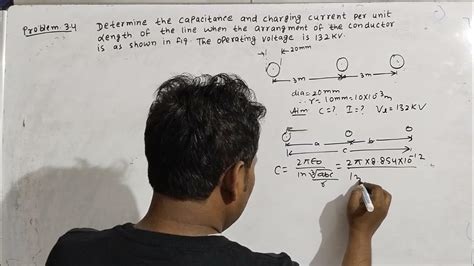 Problem: 3.4 Determine the capacitance and charging current per unit
length of the line when the arrangment of the conductor
is as shown in fig. The operating voltage is 132 KV.
20mm
3m 3m
dia = 20mm
∴ r = 10mm = 10×10⁻³m
Aim C = ? I = ? V_L = 132KV
a b
c
C = 2πε0 / ln ∛abc / r = 2π × 8.854×10⁻¹² / ln